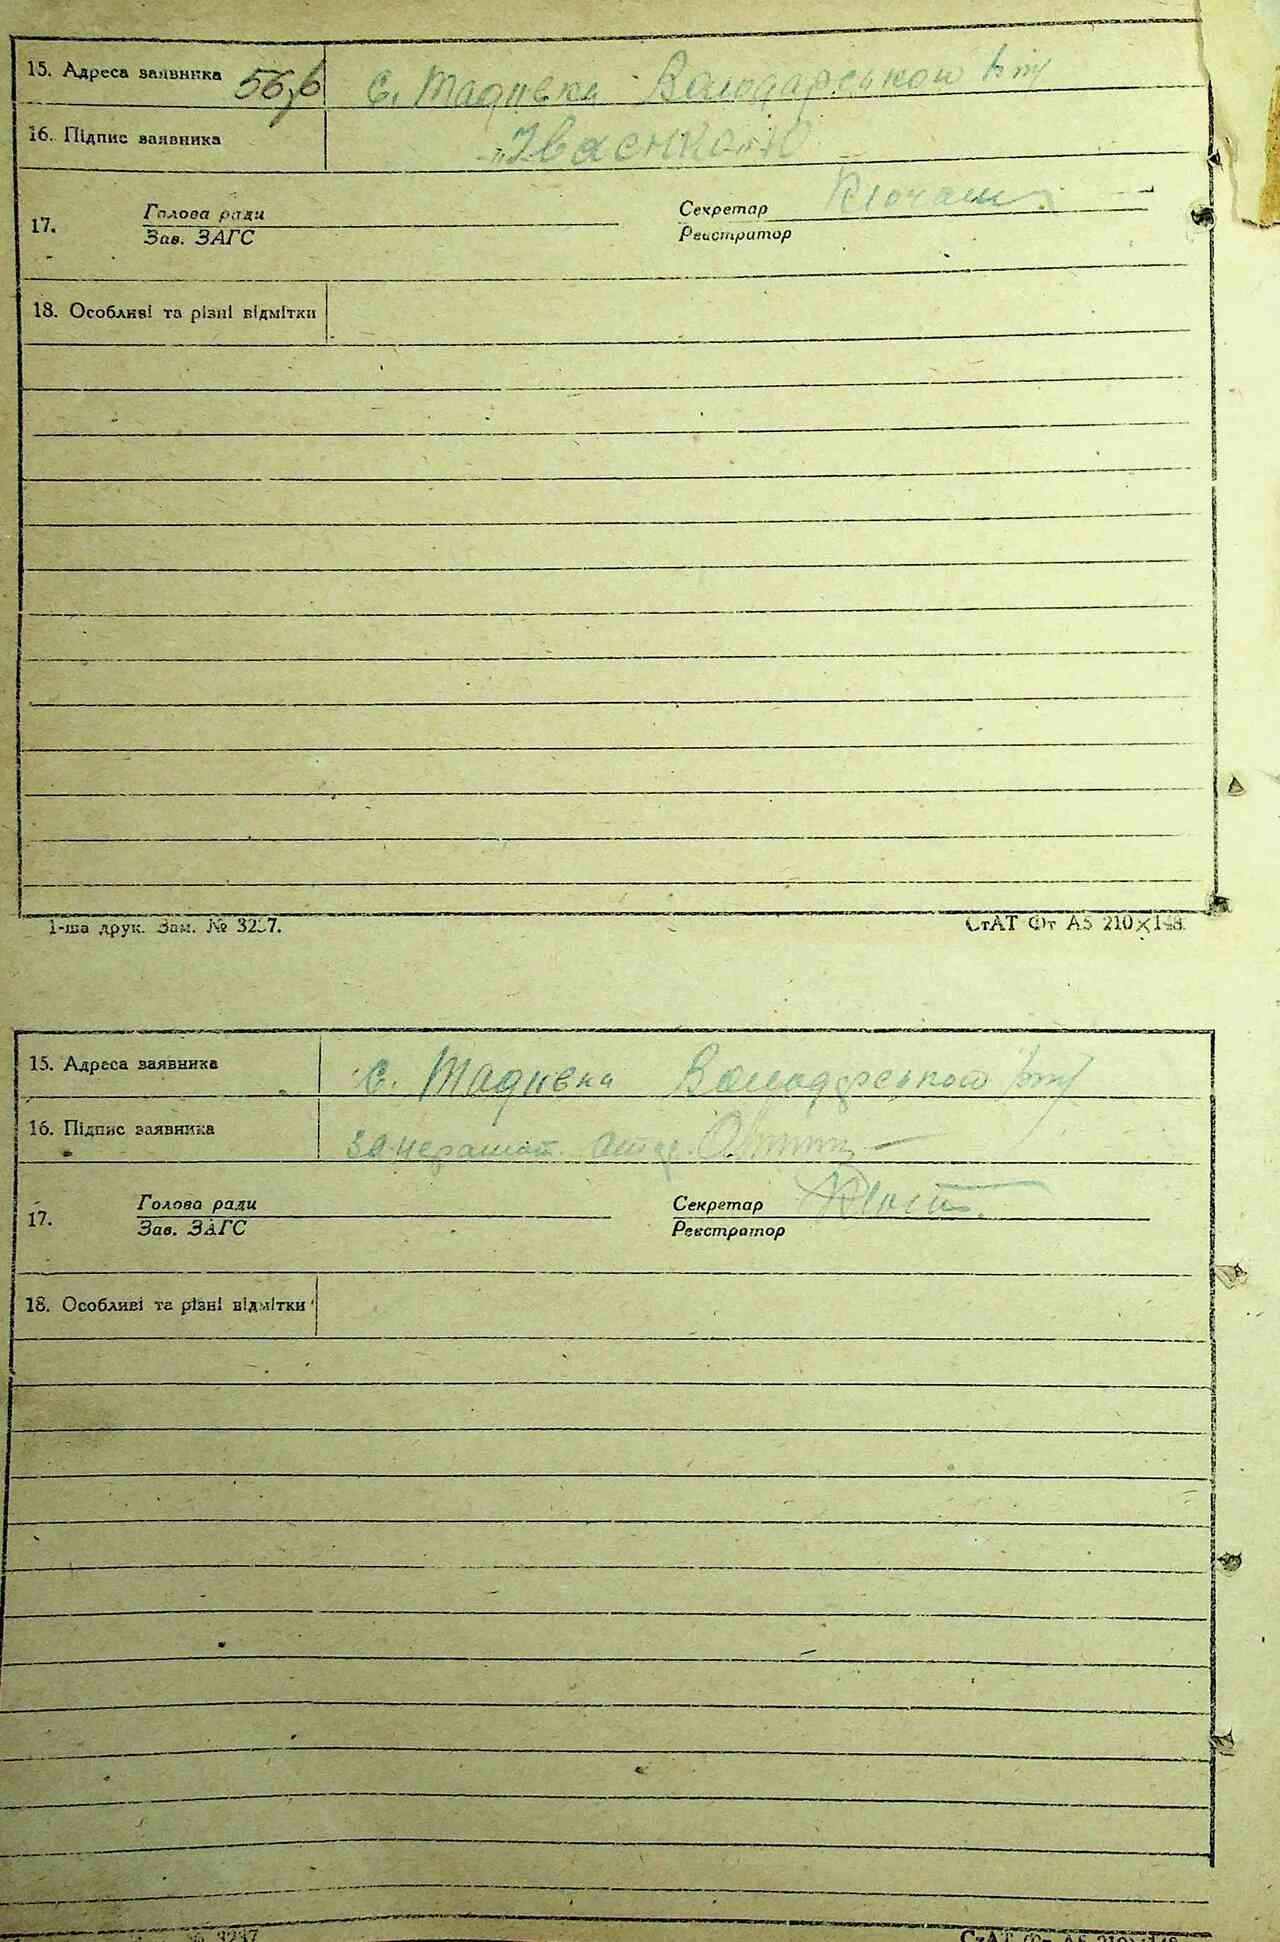 15. Адреса заявника с. Тадіївка Володарського р-ну
16. Підпис заявника Івасенко
17. Голова ради Секретар
Зав. ЗАГС Реєстратор
18. Особливі та різні відмітки
1-ша друк. Зам. № 3237.
СтАТ Фт А5 210×148.
15. Адреса заявника с. Тадіївка Володарського р-ну
16. Підпис заявника
17. Голова ради Секретар
Зав. ЗАГС Реєстратор
18. Особливі та різні відмітки
№ 3237
СтАТ Фт А5 210×148